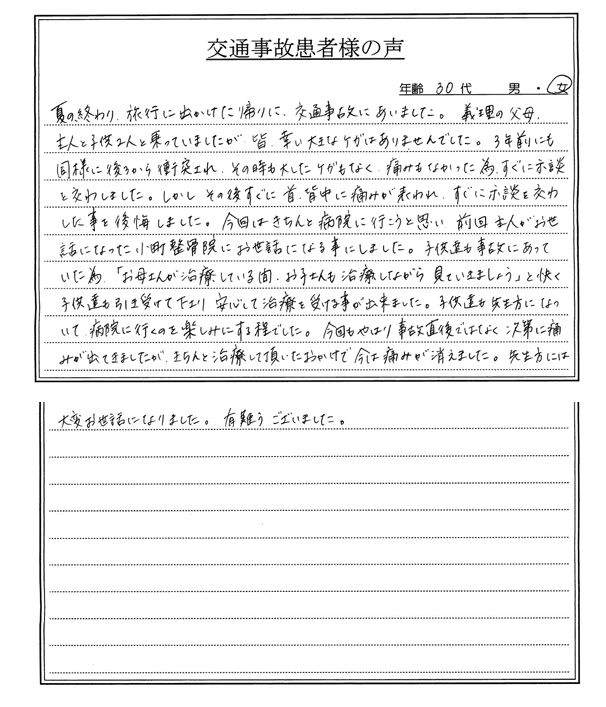 交通事故患者様の声
年齢 30代 男・女
夏の終わり、旅行に出かけた帰りに、交通事故にあいました。義理の父母、
主人と子供2人と乗っていましたが、皆、幸い大きなケガはありませんでした。3年前にも
同様に後ろから衝突され、その時も大したケガもなく、痛みもなかった為、すぐに示談
を交わしました。しかし その後すぐに 首、背中に痛みが表われ、すぐに示談を交わ
した事を後悔しました。今回はきちんと病院に行こうと思い 前回 主人がお世
話になった小町整骨院にお世話になる事にしました。子供達も事故にあって
いた為、「お母さんが治療している間、お子さんも治療しながら見ていましょう」と快く
子供達も引き受けて下さり 安心して治療を受ける事が出来ました。子供達も先生方になつ
いて、病院に行くのを楽しみにする程でした。今回もやはり事故直後ではなく 次第に痛
みが出てきましたが、きちんと治療して頂いたおかげで今は痛みが消えました。先生方には
大変お世話になりました。有難うございました。